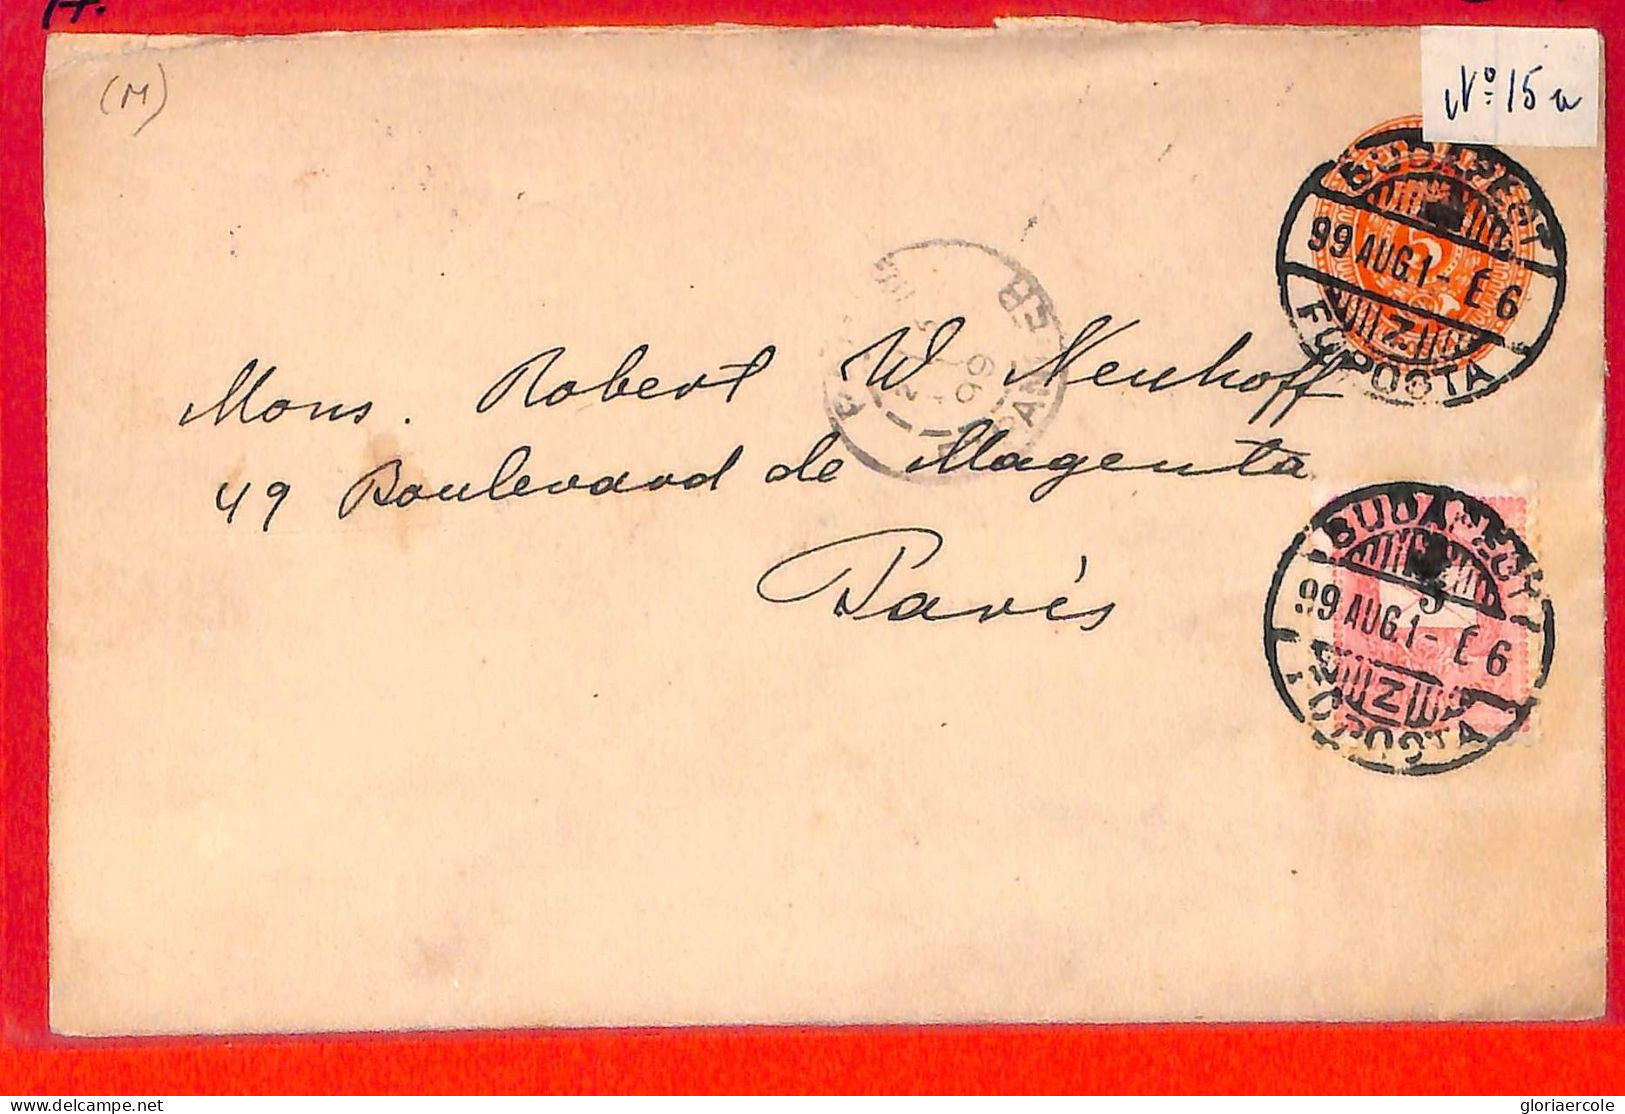 (M)
Nº 15a
BUDAPEST
99 AUG. 1 - E 6
FŐPOSTA
5
Mons. Robert W Neuhoff
49 Boulevard de Magenta
Paris
BUDAPEST
5
99 AUG. 1 - E 6
FŐPOSTA
gloriaercole